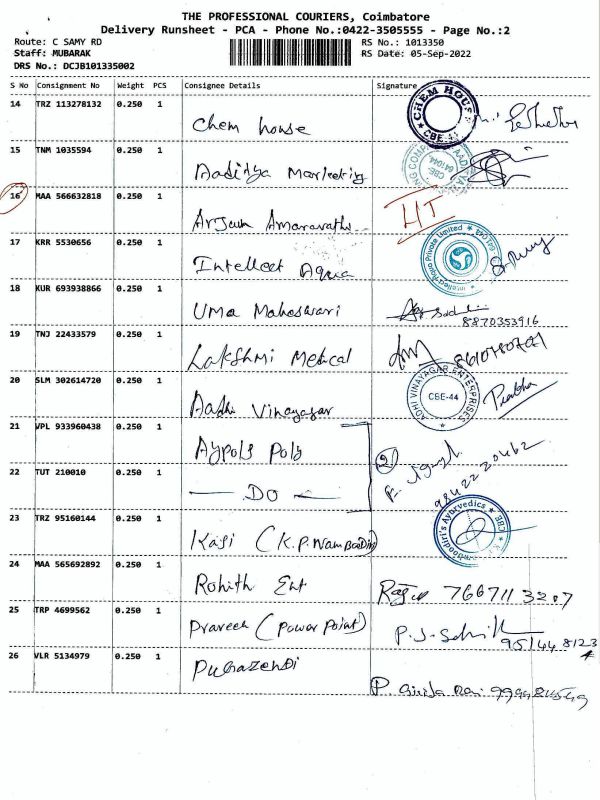 THE PROFESSIONAL COURIERS, Coimbatore
Delivery Runsheet - PCA - Phone No.:0422-3505555 - Page No.:2
Route: C SAMY RD RS No.: 1013350
Staff: MUBARAK RS Date: 05-Sep-2022
DRS No.: DCJB101335002
S No Consignment No Weight PCS Consignee Details Signature
14 TRZ 113278132 0.250 1 Chem house CHEM HOUSE CBE-44
15 TNM 1035594 0.250 1 Aaditya Marketing
16 MAA 566632818 0.250 1 Arjun Amaravathi
17 KRR 5530656 0.250 1 Intellect Aqua Intellect Aqua Private Limited
18 KUR 693938866 0.250 1 Uma Maheswari
8870353916
19 TNJ 22433579 0.250 1 Lakshmi Medical
20 SLM 302614720 0.250 1 Aadhi Vinayagar ADHI VINAYAGAR ENTERPRISES CBE-44 Prabha
21 VPL 933960438 0.250 1 Aypols Poly 2
9842220462
22 TUT 210010 0.250 1 — DO —
23 TRZ 95160144 0.250 1 Kasi (K.P. Namboodiri) Ayurvedics
24 MAA 565692892 0.250 1 Rohith Ent
25 TRP 4699562 0.250 1 Praveen (Power Point)
26 VLR 5134979 0.250 1 Pugazendi